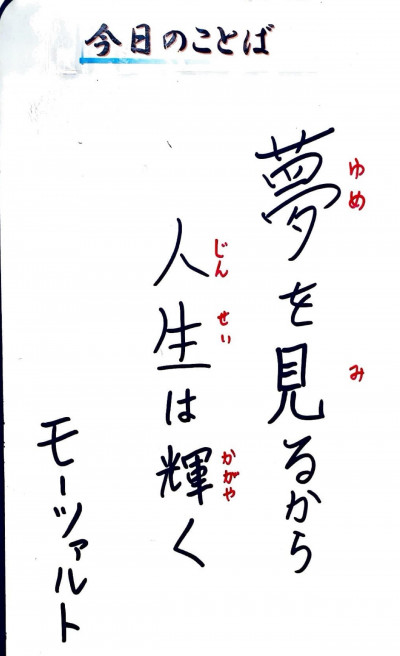 今日のことば
夢を見るから
ゆめ
み
人生は輝く
じん
せい
かがや
モーツァルト